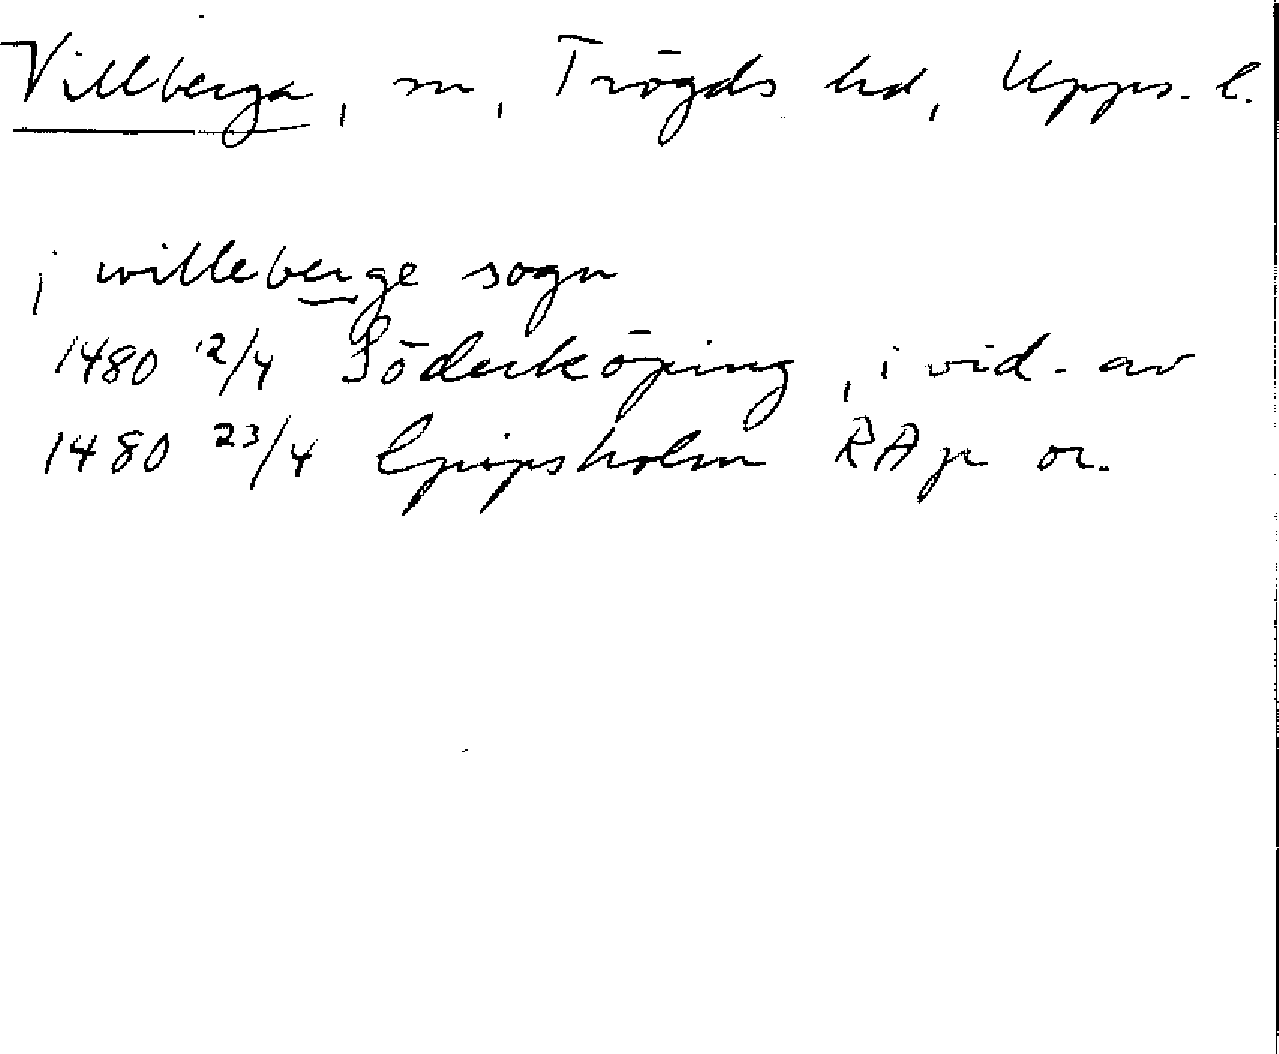 Villberga, sn, Trögds hd, Upps. l.
j willeberge sogn
1480 12/4 Söderköping, i vid. av
1480 23/4 Gripsholm RAp or.